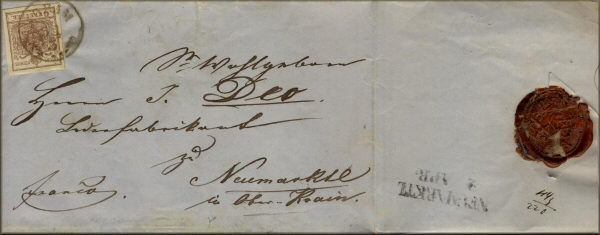 Sr. Wohlgeboren
Herrn J. Deo.
Lederfabrikant
zu
Neumarktl
in Ober-Krain.
franco
NEUMARKTL
APR